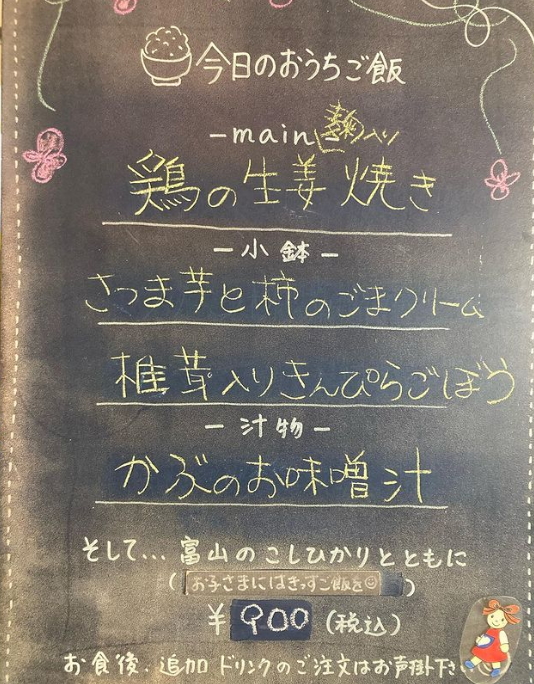 今日のおうちご飯
-main- 春菊入り
鶏の生姜焼き
-小鉢-
さつま芋と柿のごまクリーム
椎茸入りきんぴらごぼう
-汁物-
かぶのお味噌汁
そして... 富山のこしひかりとともに
(お子さまにはきっずご飯を☺)
¥900(税込)
お食後、追加ドリンクのご注文はお声掛下さ